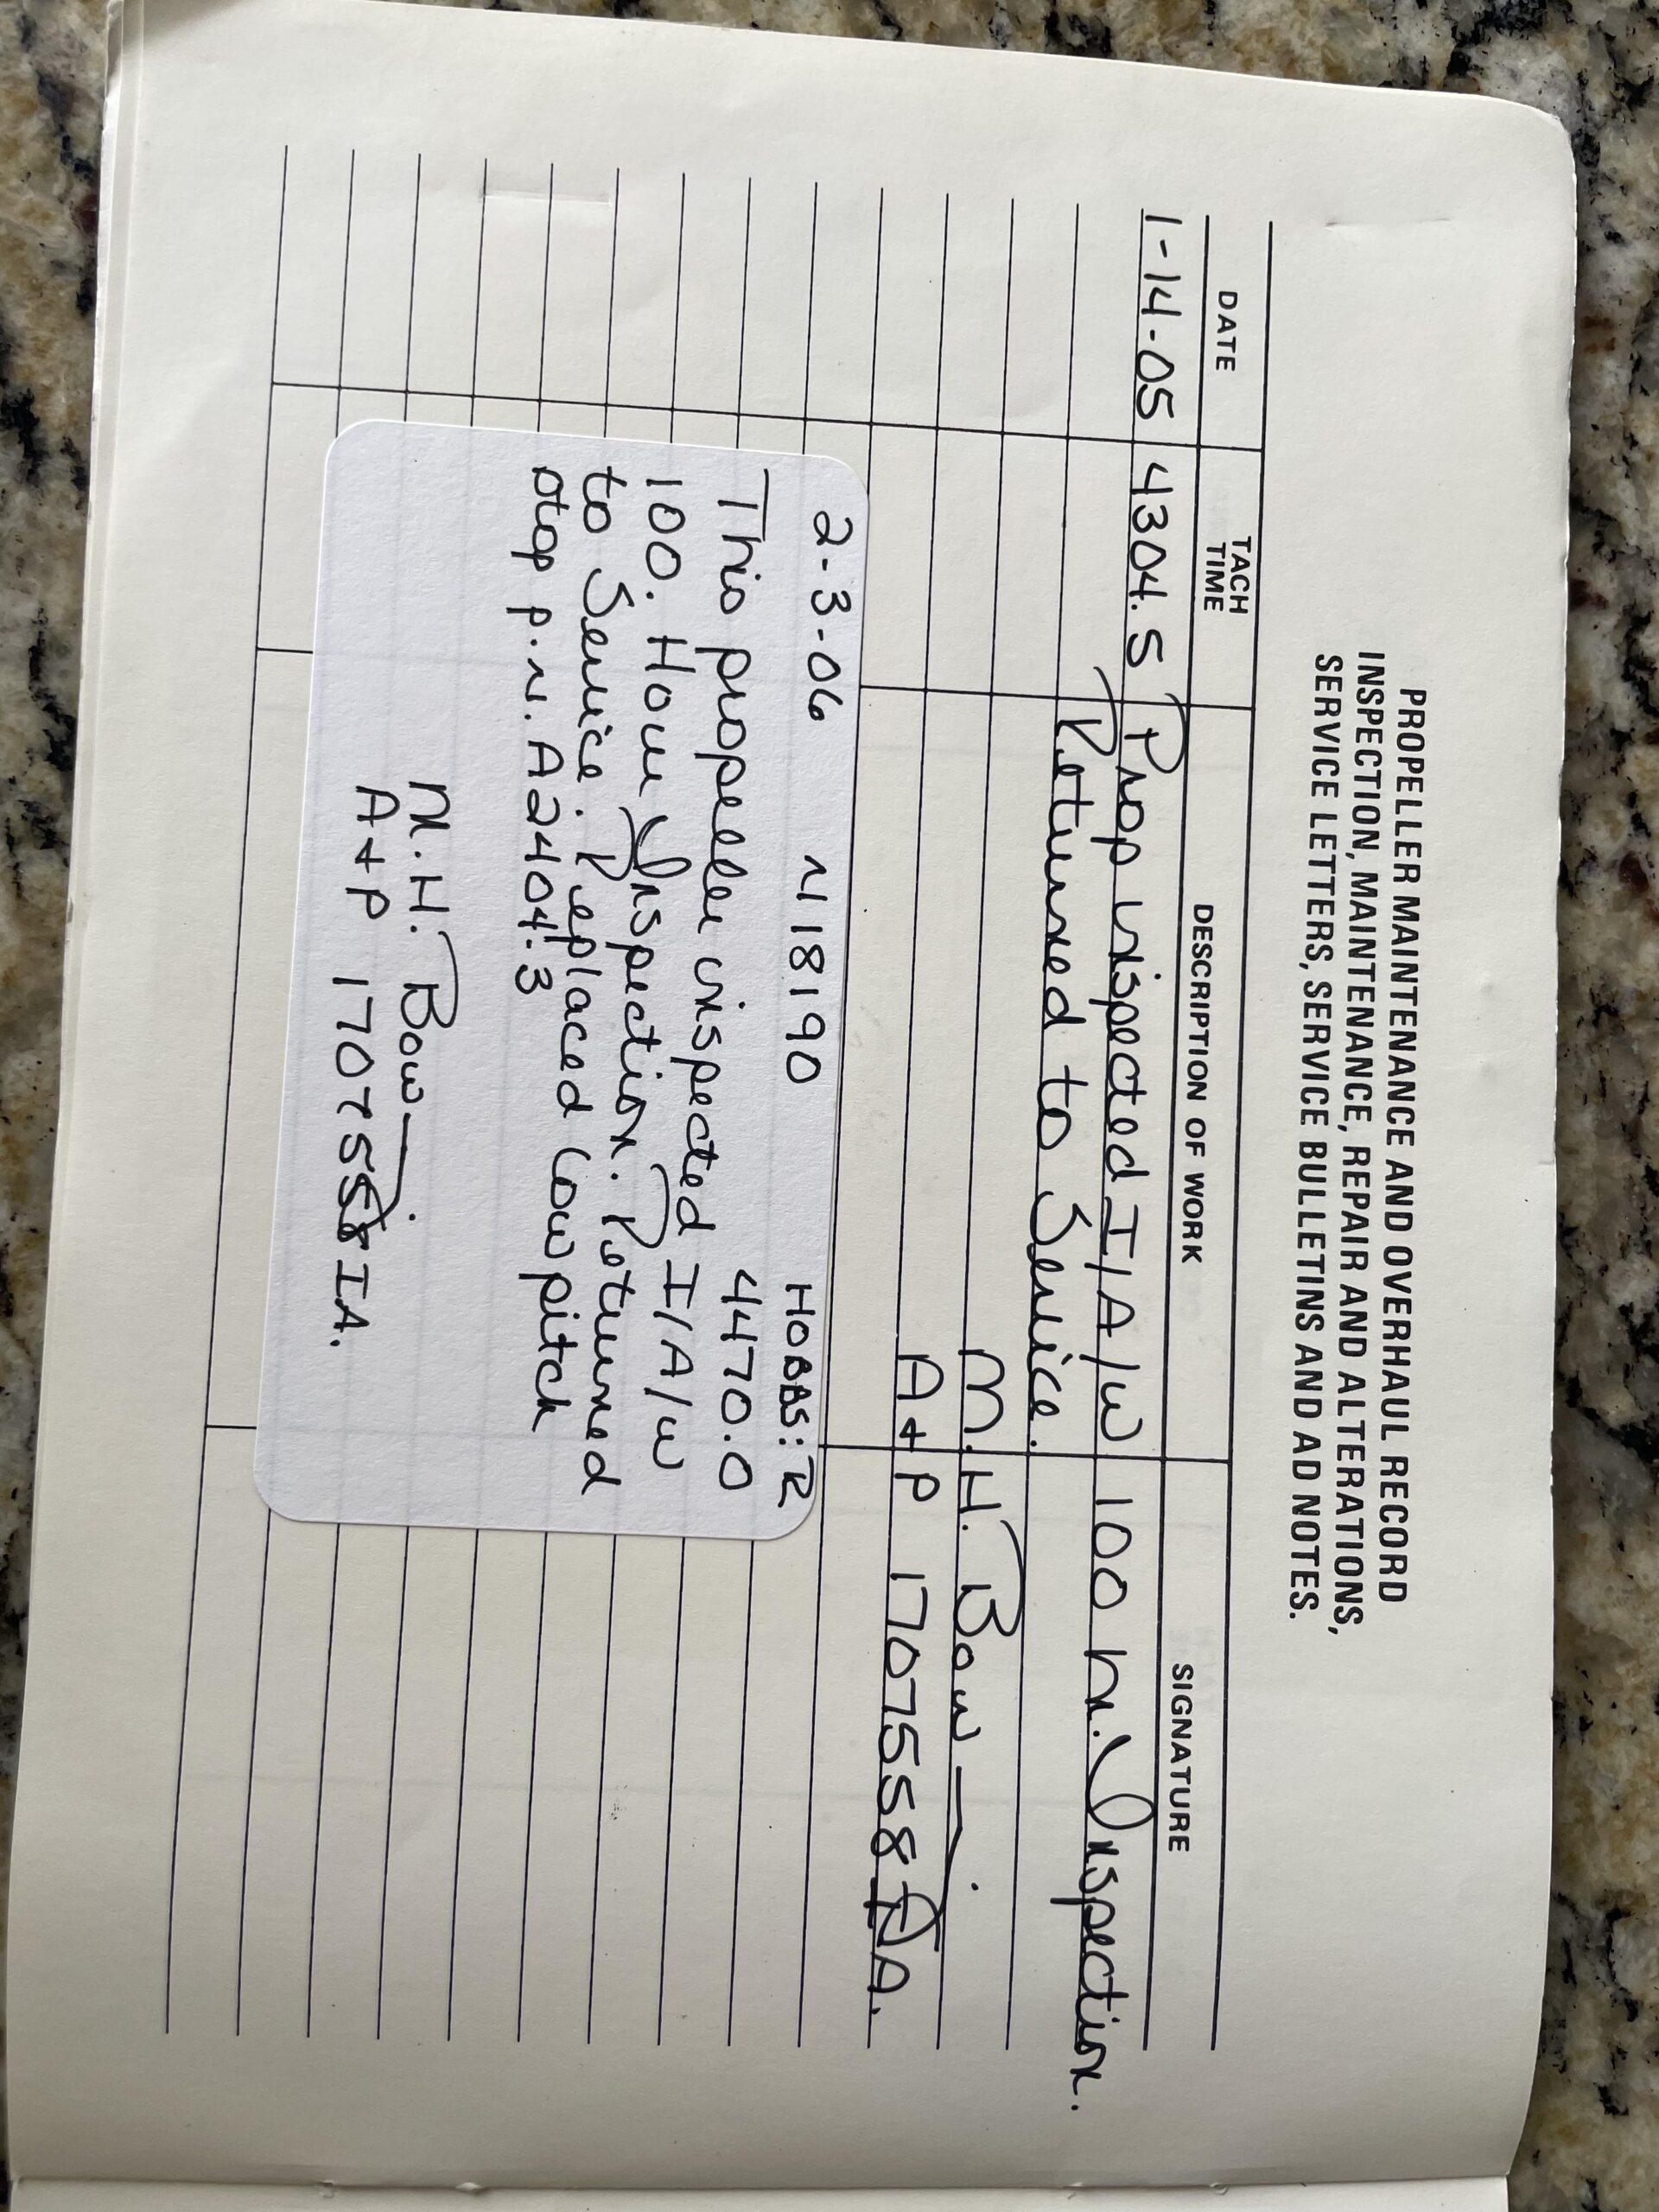 PROPELLER MAINTENANCE AND OVERHAUL RECORD
INSPECTION, MAINTENANCE, REPAIR AND ALTERATIONS,
SERVICE LETTERS, SERVICE BULLETINS AND AD NOTES.
DATE TACH TIME DESCRIPTION OF WORK SIGNATURE
1-14-05 4304.5 Prop inspected I/A/W 100 hr. Inspection.
Returned to Service.
M.H. Bow
A+P 1707558 IA.
2-3-06 N18190 HOBBS:
This propeller inspected 4470.0
100. Hour Inspection. I/A/W
to Service. Replaced Low pitch Returned
stop p.n. A2404-3
M.H. Bow
A+P 1707558 IA.